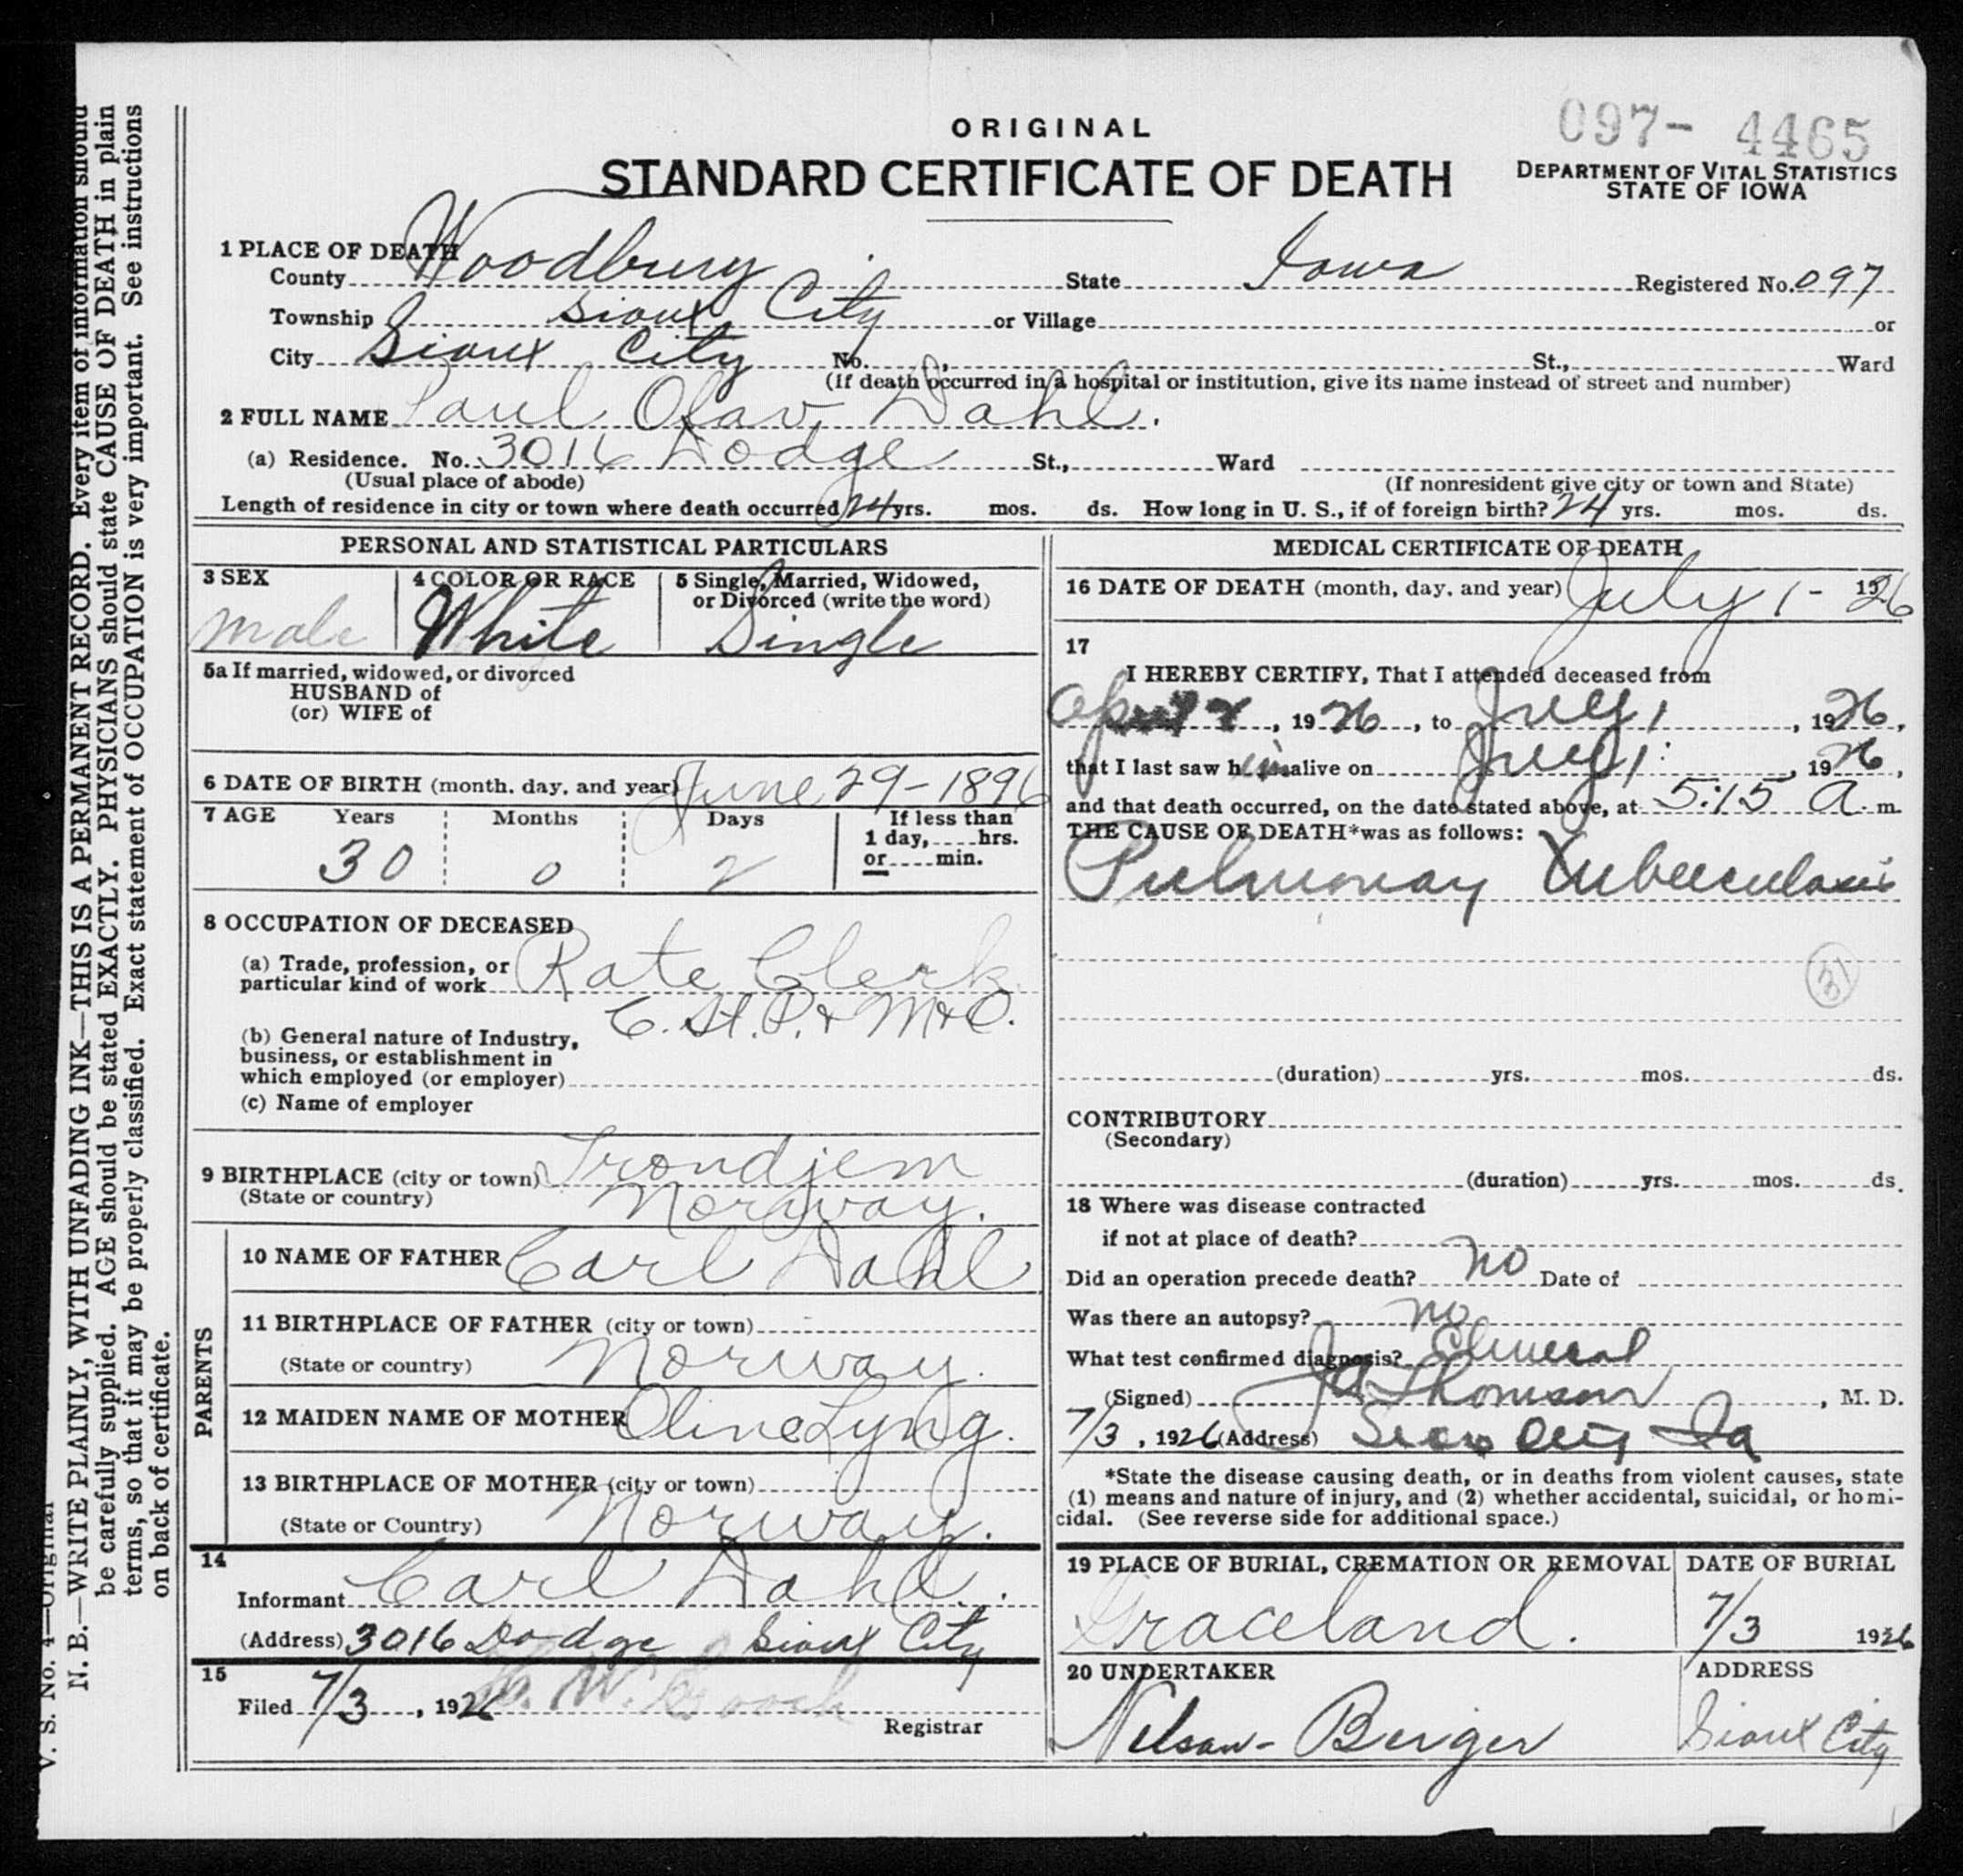 097- 4465
ORIGINAL
STANDARD CERTIFICATE OF DEATH
DEPARTMENT OF VITAL STATISTICS
STATE OF IOWA
1 PLACE OF DEATH
County Woodbury State Iowa Registered No. 097
Township Sioux City or Village or
City Sioux City No. St., Ward
(If death occurred in a hospital or institution, give its name instead of street and number)
2 FULL NAME Paul Olav Dahl.
(a) Residence. No. 3016 Dodge St., Ward
(Usual place of abode) (If nonresident give city or town and State)
Length of residence in city or town where death occurred 24 yrs. mos. ds. How long in U. S., if of foreign birth? 24 yrs. mos. ds.
PERSONAL AND STATISTICAL PARTICULARS
3 SEX 4 COLOR OR RACE 5 Single, Married, Widowed,
or Divorced (write the word)
male White Single
5a If married, widowed, or divorced
HUSBAND of
(or) WIFE of
6 DATE OF BIRTH (month, day, and year) June 29-1896
7 AGE Years Months Days If less than
1 day, hrs.
30 0 2 or min.
8 OCCUPATION OF DECEASED
(a) Trade, profession, or
particular kind of work Rate Clerk
C. St. P. & M & O.
(b) General nature of Industry,
business, or establishment in
which employed (or employer)
(c) Name of employer
9 BIRTHPLACE (city or town) Trondjem
(State or country) Norway.
PARENTS
10 NAME OF FATHER Carl Dahl
11 BIRTHPLACE OF FATHER (city or town)
(State or country) Norway.
12 MAIDEN NAME OF MOTHER Oline Lyng.
13 BIRTHPLACE OF MOTHER (city or town)
(State or Country) Norway.
14
Informant Carl Dahl.
(Address) 3016 Dodge Sioux City
15
Filed 7/3, 1926
Registrar
MEDICAL CERTIFICATE OF DEATH
16 DATE OF DEATH (month, day, and year) July 1- 1926
17
I HEREBY CERTIFY, That I attended deceased from
April, 1926, to July 1, 1926,
that I last saw him alive on July 1, 1926,
and that death occurred, on the date stated above, at 5:15 A. m.
THE CAUSE OF DEATH* was as follows:
Pulmonay Tuberculosis
31
(duration) yrs. mos. ds.
CONTRIBUTORY
(Secondary)
(duration) yrs. mos. ds.
18 Where was disease contracted
if not at place of death?
Did an operation precede death? no Date of
Was there an autopsy? no
What test confirmed diagnosis?
(Signed) J A Thomson, M. D.
7/3, 1926 (Address) Sioux City Ia
*State the disease causing death, or in deaths from violent causes, state
(1) means and nature of injury, and (2) whether accidental, suicidal, or homi-
cidal. (See reverse side for additional space.)
19 PLACE OF BURIAL, CREMATION OR REMOVAL DATE OF BURIAL
Graceland. 7/3 1926
20 UNDERTAKER ADDRESS
Nelson-Berger Sioux City
N. B.—WRITE PLAINLY, WITH UNFADING INK—THIS IS A PERMANENT RECORD. Every item of information should
be carefully supplied. AGE should be stated EXACTLY. PHYSICIANS should state CAUSE OF DEATH in plain
terms, so that it may be properly classified. Exact statement of OCCUPATION is very important. See instructions
on back of certificate.
V. S. No. 4—Original